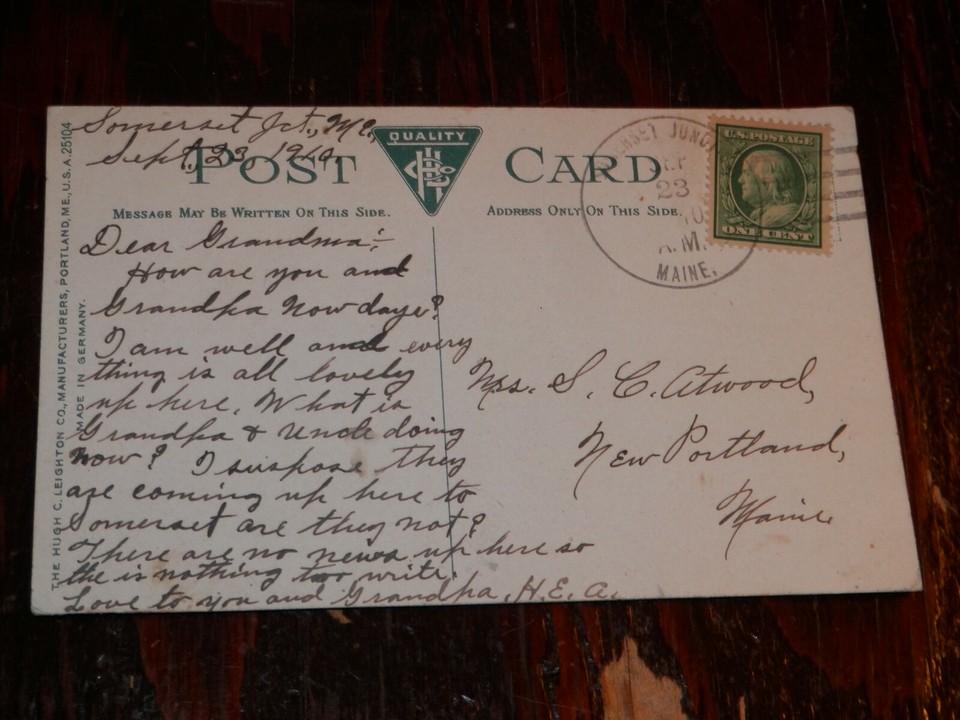 Somerset Jct., Me,
Sept, 23, 1910.
POST CARD
QUALITY
MESSAGE MAY BE WRITTEN ON THIS SIDE.
ADDRESS ONLY ON THIS SIDE.
Dear Grandma:-
How are you and
Grandpa Now days?
I am well and every
thing is all lovely
up here. What is
Grandpa & Uncle doing
now? I suspose they
are coming up here to
Somerset are they not?
There are no news up here so
the is nothing too write.
Love to you and Grandpa, H.E.A.
Mrs. S. C. Atwood,
New Portland,
Maine
23
A.M.
MAINE.
U.S. POSTAGE
ONE CENT
THE HUGH C. LEIGHTON CO., MANUFACTURERS, PORTLAND, ME., U.S.A. 25104
MADE IN GERMANY.